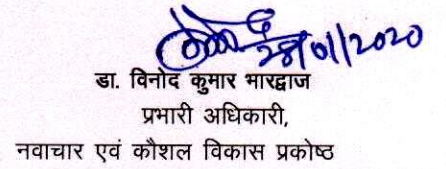 28/01/2020
डा. विनोद कुमार भारद्वाज
प्रभारी अधिकारी,
नवाचार एवं कौशल विकास प्रकोष्ठ